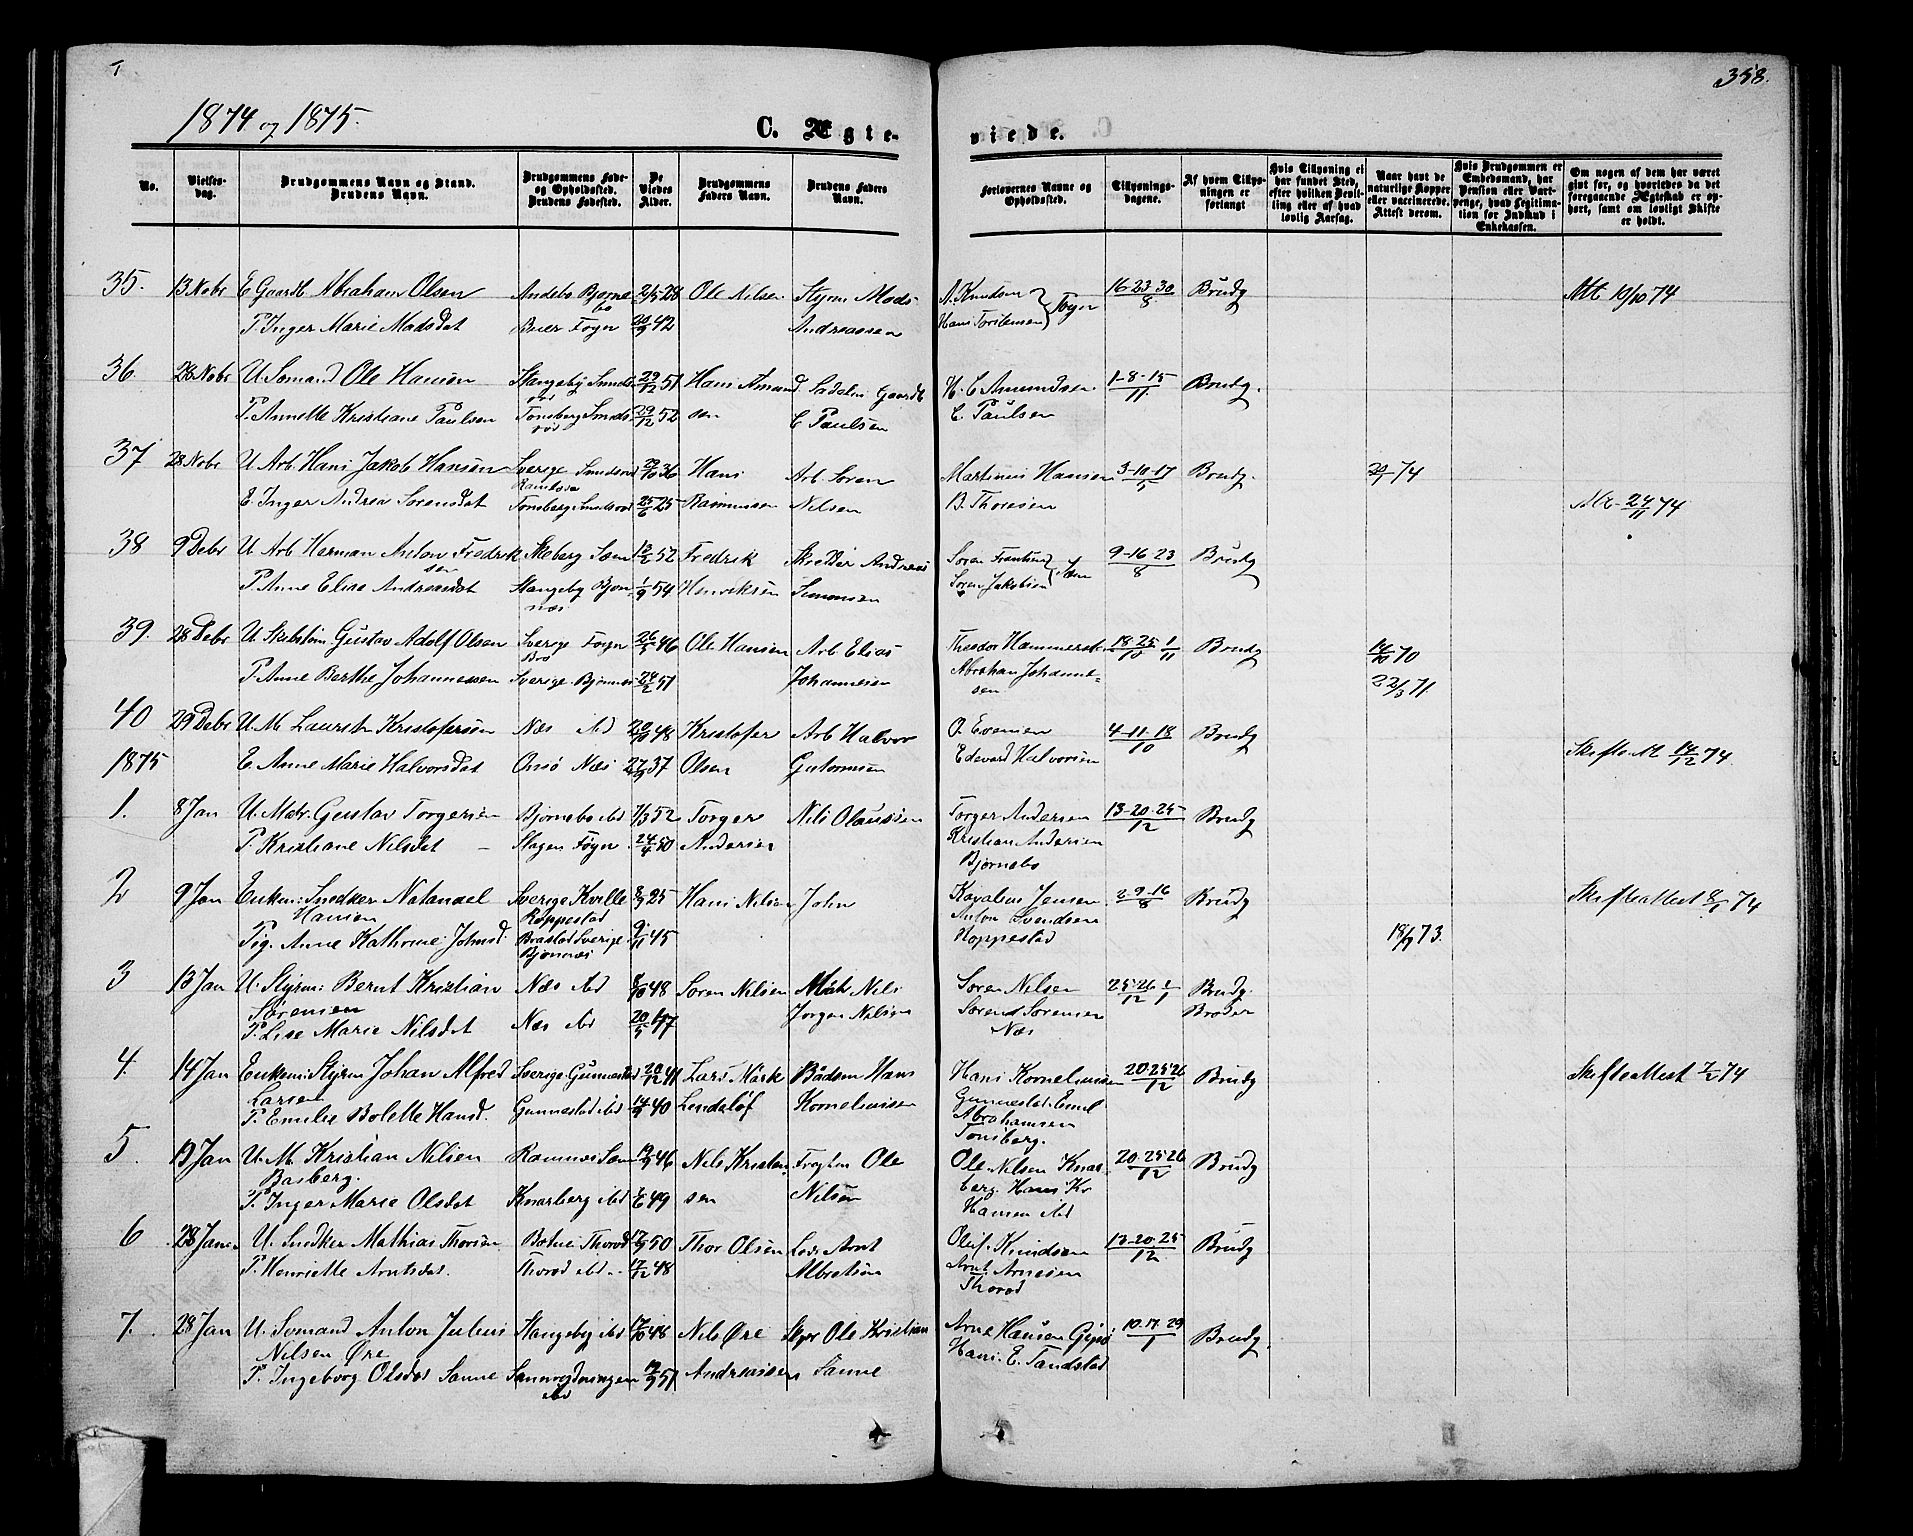 358.
1874 og 1875.
C. Ægteviede.
No.
Vielses-dag.
Brudgommens Navn og Stand.
Brudens Navn.
Brudgommens Føde- og Opholdssted.
Brudens Fødested.
De Viedes Alder.
Brudgommens Faders Navn.
Brudens Faders Navn.
Forlovernes Navne og Opholdssted.
Tillysnings-dagene.
Af hvem Tillysningen er forlangt
Hvis Tillysning ei har fundet Sted, efter hvilken Bevilling eller af hvad lovlig Aarsag.
Naar havt de naturlige Kopper eller vaccinerede. Attest derom.
Hvis Brudgommen er Embedsmand, har Pension eller Vartpenge, hvad Legitimation for Indskud i Enkekassen.
Om nogen af dem har været gift for, og hvorledes da det foregaaende Ægteskab er ophørt, samt om lovligt Skifte er holdt.
35. 13 Nobr E. Gaardb Abraham Olsen Andebo Bjørnebo 2/5 28 Ole Nilsen Styrm Mads A. Knudsen Føyn 16-23-30/8 Brudg Att 10/10 74
P. Inger Marie Madsdat Føyn 20/9 42 Andreassen Hans
36. 28 Nobr U. Sømand Ole Hansen Slangeby Smidsrød 29/12 51 Hans Amand Gaardb H. C. Amundsen 1-8-15/11 Brudg.
P. Annette Kristiane Paulsen Tønsberg Smidsrød 29/12 52 sen C Paulsen C. Paulsen
37 28 Nobr U. Arb. Hans Jakob Hansen Sverige Smidsrød 29/10 36 Hans Arb. Søren Martinus Hansen 3-10-17/5 Brudg. 74
E. Inger Andrea Sørensdat Tønsberg Smidsrød 25/6 25 Rasmussen Nilsen B. Thoresen 24/11 74
38 9 Debr U. Arb. Herman Anton Fredriksen Sem 13/2 52 Fredrik Skrædder Andreas Søren Frantsen Sem 9-16-23/8 Brudg
P. Anne Elise Andreasdat Slangeby Bjørnnæs 1/9 54 Henriksen Simonsen Søren Jakobsen
39. 28 Debr U. Skibstøm. Gustav Adolf Olsen Sverige Føyn 26/5 46 Ole Hansen Arb Elias Theodor 18-25/10 1/11 Brudg 14/10 70
P. Anne Berthe Johannessen Sverige Bjønnes 24/2 51 Johannesen Abraham Johannesen 22/3 71
40 29 Debr U. M. Laurits Kristofersen Næs ibd 20/10 48 Kristofer Arb Halvor O. Evensen 4-11-18/10 Brudg
1875 E. Anne Marie Halvorsdat Onsø Næs 27/9 37 Olsen Guttormsen Edevard Halvorsen Skifteatt 14/12 74
1. 8 Jan U. Matr. Gustav Torgersen Bjørnebo ibd 7/3 52 Torger Nils Olaussen Torger Andersen 13-20-25/12 Brudg
P. Kristiane Nilsdat Slagen Føyn 24/4 50 Andersen Kristian Andersen
Bjørnebo
2 9 Jan Enkem: Snedker Natanael Sverige Kville 8/9 25 Hans Nilsen John Jensen 2-9-16/8 Brudg Skifteattest 8/1 74
Hansen Roppestad Anton Svendsen
Pig. Anne Kathrine Johnsd. Brastad Sverige 9/11 45 Hoppestad 18/9 73.
Bjønnæs
3 13 Jan U. Styrm: Bernt Kristian Næs ibd 8/10 48 Søren Nilsen Nils Søren Nilsen 25-26/12 1/1 Brudg.
Sørensen Jørgen Nilsen Søren Sørensen Broder
P. Lise Marie Nilsdat Næs ibd 20/5 47 Næs
4. 14 Jan Enkem: Styrm Johan Alfred Sverige Gunnestad 20/12 41 Lars Mårk Bådsm Hans Hans Kornelius 20-25-26/12 Brudg Skifteattest 7/2 74
Larsen Gunnestad Emil
P. Emilie Bolette Hansd. Gunnestad ibd 14/9 40 Lindeløf Korneliusen Abrahamsen
Tønsberg.
5. 13 Jan U. M. Kristian Nilsen Ramnes Sem 19/9 46 Nils Kristen Ole Ole Nilsen Knar 20-25-26/12 Brudg
Basberg. berg. Hans Kr
P. Inger Marie Olsdat Knarberg ibd 49 sen Nilsen Hansen ibd
6 28 Jan U. Snedker Mathias Thorsen Botne Thorød 17/9 50 Thor Olsen Lods Arnt Oluf Knudsen 13-20-25/12 Brudg
P. Henriette Arntsdat. Thorød ibd 17/12 48 Albretsen Arnt Arnesen
Thorød
7. 28 Jan U. Sømand Anton Julius Slangeby ibd 17/10 48 Nils Øre Ole Kristian Arne Hansen Gipø 10-17-29/1 Brudg.
Nilsen Øre Hans E. Tandstad
P. Ingeborg Olsdat Sanne 19/9 51 Andreassen Sanne
ibd